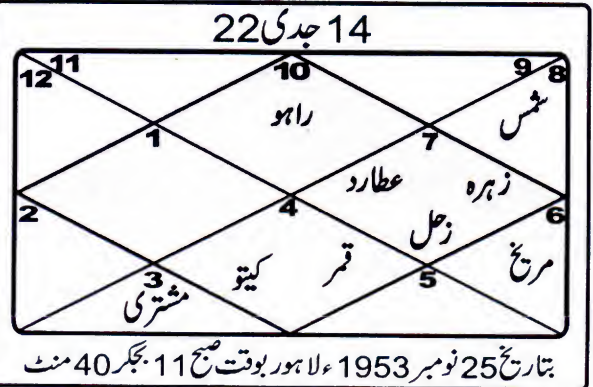 14 جدی 22
12 11 10 9 8
راہو
شمس
1 7
عطارد زہرہ
2 4 6
زحل
مریخ
قمر
کیتو
3 5
مشتری
بتاریخ 25 نومبر 1953ء لاہور بوقت صبح 11 بجکر 40 منٹ